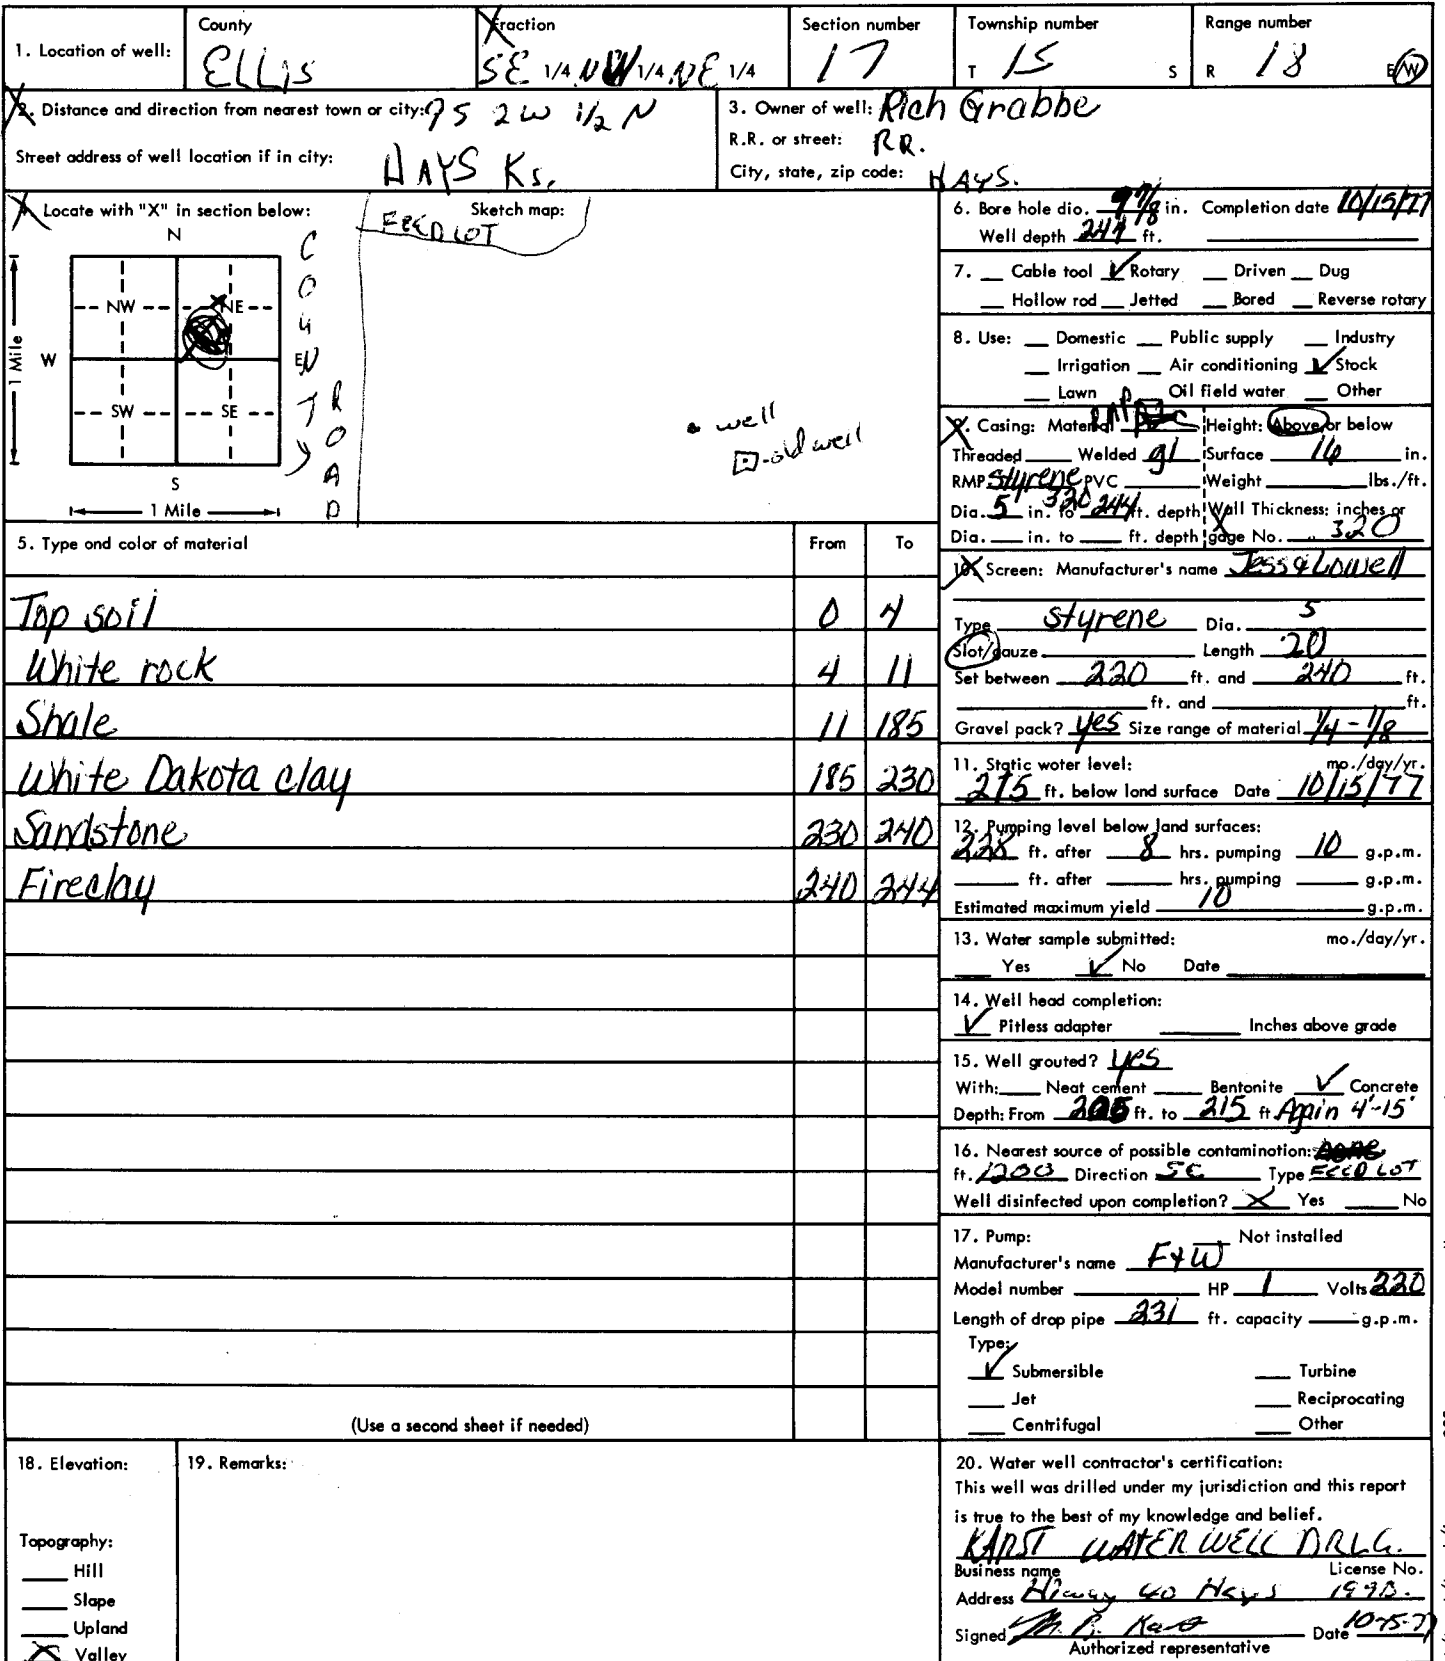 1. Location of well: County ELLIS Fraction SE 1/4 NW 1/4 NE 1/4 Section number 17 Township number T 15 S Range number R 18 E/W
2. Distance and direction from nearest town or city: 9S 2W 1/2 N
Street address of well location if in city: HAYS Ks.
3. Owner of well: Rich Grabbe
R.R. or street: RR.
City, state, zip code: HAYS.
4. Locate with "X" in section below:
N
NW NE
W E
SW SE
S
1 Mile
1 Mile
COUNTY ROAD
Sketch map:
FEED LOT
well
old well
5. Type and color of material From To
Top soil 0 4
White rock 4 11
Shale 11 185
White Dakota clay 185 230
Sandstone 230 240
Fireclay 240 244
(Use a second sheet if needed)
6. Bore hole dia. 9 7/8 in. Completion date 10/15/77
Well depth 244 ft.
7. Cable tool ✓ Rotary Driven Dug
Hollow rod Jetted Bored Reverse rotary
8. Use: Domestic Public supply Industry
Irrigation Air conditioning ✓ Stock
Lawn Oil field water Other
9. Casing: Material Height: Above or below
Threaded Welded gl Surface 16 in.
RMP styrene PVC Weight lbs./ft.
Dia. 5 in. to 244 ft. depth Wall Thickness: inches or
Dia. in. to ft. depth gage No. .320
10. Screen: Manufacturer's name Jess & Lowell
Type styrene Dia. 5
Slot/gauze Length 20
Set between 220 ft. and 240 ft.
ft. and ft.
Gravel pack? yes Size range of material 1/4 - 1/8
11. Static water level: mo./day/yr.
215 ft. below land surface Date 10/15/77
12. Pumping level below land surfaces:
228 ft. after 8 hrs. pumping 10 g.p.m.
ft. after hrs. pumping g.p.m.
Estimated maximum yield 10 g.p.m.
13. Water sample submitted: mo./day/yr.
Yes ✓ No Date
14. Well head completion:
✓ Pitless adapter Inches above grade
15. Well grouted? yes
With: Neat cement Bentonite ✓ Concrete
Depth: From 205 ft. to 215 ft Again 4'-15'
16. Nearest source of possible contamination:
ft. 1200 Direction SE Type FEED LOT
Well disinfected upon completion? X Yes No
17. Pump: Not installed
Manufacturer's name F & W
Model number HP 1 Volts 220
Length of drop pipe 231 ft. capacity g.p.m.
Type:
✓ Submersible Turbine
Jet Reciprocating
Centrifugal Other
18. Elevation:
Topography:
Hill
Slope
Upland
X Valley
19. Remarks:
20. Water well contractor's certification:
This well was drilled under my jurisdiction and this report
is true to the best of my knowledge and belief.
KARST WATER WELL DRLG.
Business name License No.
Address Hiway 40 Hays
Signed Date 10-15-77
Authorized representative